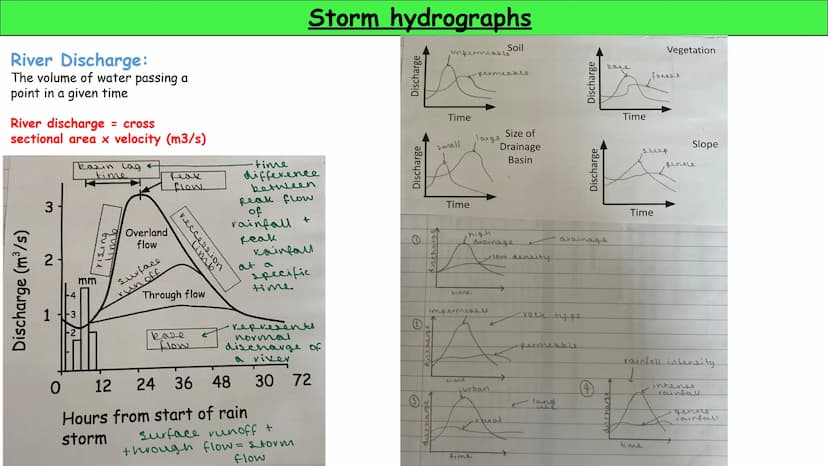 Storm hydrographs
River Discharge:
The volume of water passing a
point in a given time
River discharge = cross
sectional area x velocity (m3/s)
basin lag
time
time
difference
between
peak flow
of
rainfall +
peak
rainfall
at a
specific
time
peak
flow
rising
limb
Overland
flow
reccession
limb
surface
runoff
Through flow
base
flow
represents
normal
discharge of
a river
Discharge (m³/s)
3
2
1
mm
4
3
2
0 12 24 36 48 30 72
Hours from start of rain
storm
surface runoff +
through flow = storm
flow
Soil
impermeable
permeable
Discharge
Time
Vegetation
bare
forest
Discharge
Time
Size of
Drainage
Basin
small
large
Discharge
Time
Slope
steep
gentle
Discharge
Time
1
high
drainage
low density
drainage
discharge
time
2
impermeable
rock type
permeable
discharge
time
3
urban
rural
land
use
discharge
time
4
rainfall intensity
intense
rainfall
gentle
rainfall
discharge
time